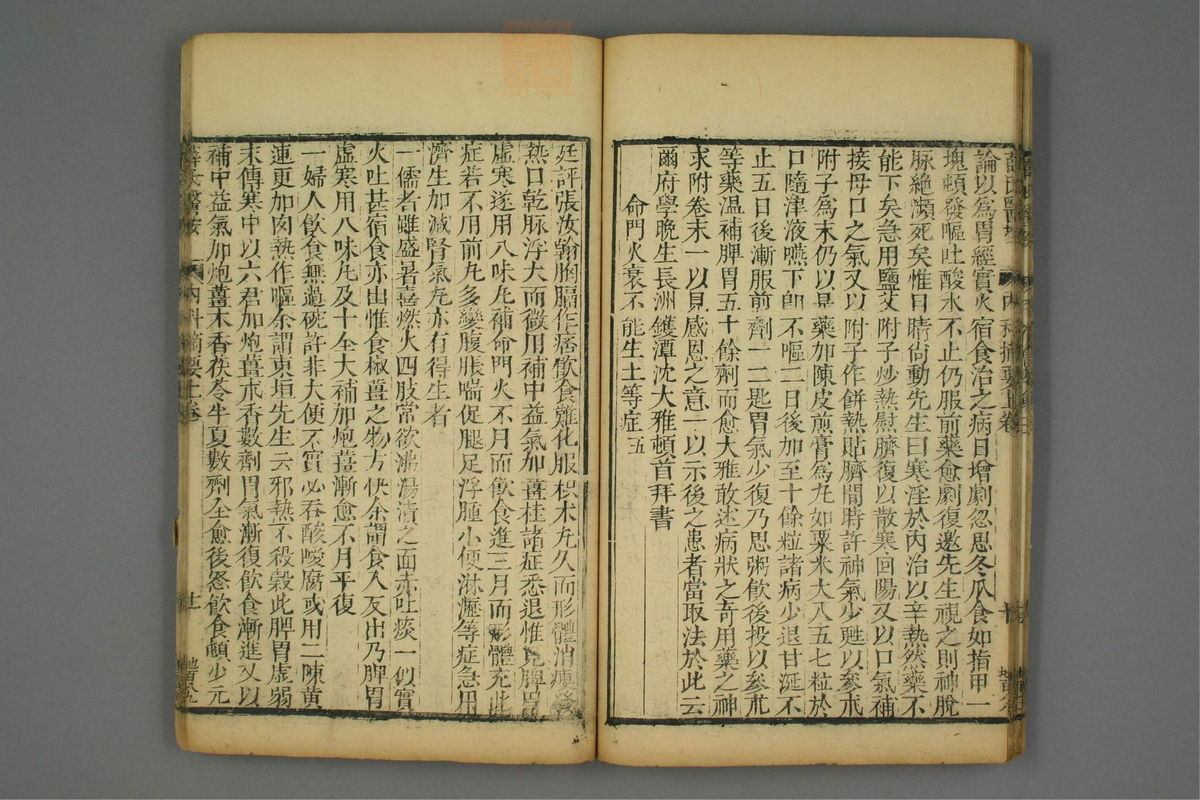 論以爲胃經實火宿食治之病日增劇忽思冬瓜食如指甲一
塊頓發嘔吐酸水不止仍服前藥愈劇復邀先生視之則神脫
脉絶瀕死矣惟目睛尙動先生曰寒淫於內治以辛熱然藥不
能下矣急用鹽艾附子炒熱慰臍復以散寒回陽又以口氣補
接母口之氣又以附子作餅熱貼臍間時許神氣少甦以參朮
附子爲末仍以是藥加陳皮煎膏爲丸如粟米大入五七粒於
口隨津液嚥下卽不嘔二日後加至十餘粒諸病少退甘涎不
止五日後漸服前劑一二匙胃氣少復乃思粥飮後投以參朮
等藥温補脾胃五十餘劑而愈大雅敢述病狀之奇用藥之神
求附卷末一以見感恩之意一以示後之患者當取法於此云
爾府學晚生長洲鑊潭沈大雅頓首拜書
命門火衰不能生土等症 五
廷評張汝翰胸膈作痞飮食難化服枳朮丸久而形體消瘦發
熱口乾脉浮大而微用補中益氣加薑桂諸症悉退惟見脾胃
虛寒遂用八味丸補命門火不月而飮食進三月而形體充此
症若不用前丸多變腹脹喘促腿足浮腫小便淋瀝等症急用
濟生加減腎氣丸亦有得生者
一儒者雖盛暑喜燃火四肢常欲沸湯漬之面赤吐痰一似實
火吐甚宿食亦出惟食椒薑之物方快余謂食入反出乃脾胃
虛寒用八味丸及十全大補加炮薑漸愈不月平復
一婦人飮食無過碗許非大便不實必吞酸噯腐或用二陳黃
連更加內熱作嘔余謂東垣先生云邪熱不殺穀此脾胃虛弱
末傳寒中以六君加炮薑木香數劑胃氣漸復飮食漸進又以
補中益氣加炮薑木香茯苓半夏數劑全愈後怒飮食頓少元
薛氏醫按
內科摘要上卷
十一